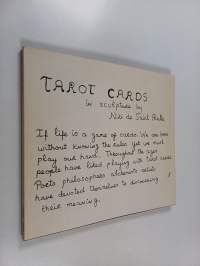 TAROT CARDS
in sculpture by
Niki de Saint Phalle
If life is a game of cards. We are born
without knowing the rules. yet we must
play our hand. Throughout the ages
people have liked playing with tarot cards.
Poets philosophers alchemists artists
have devoted themselves to discovering
their meaning.